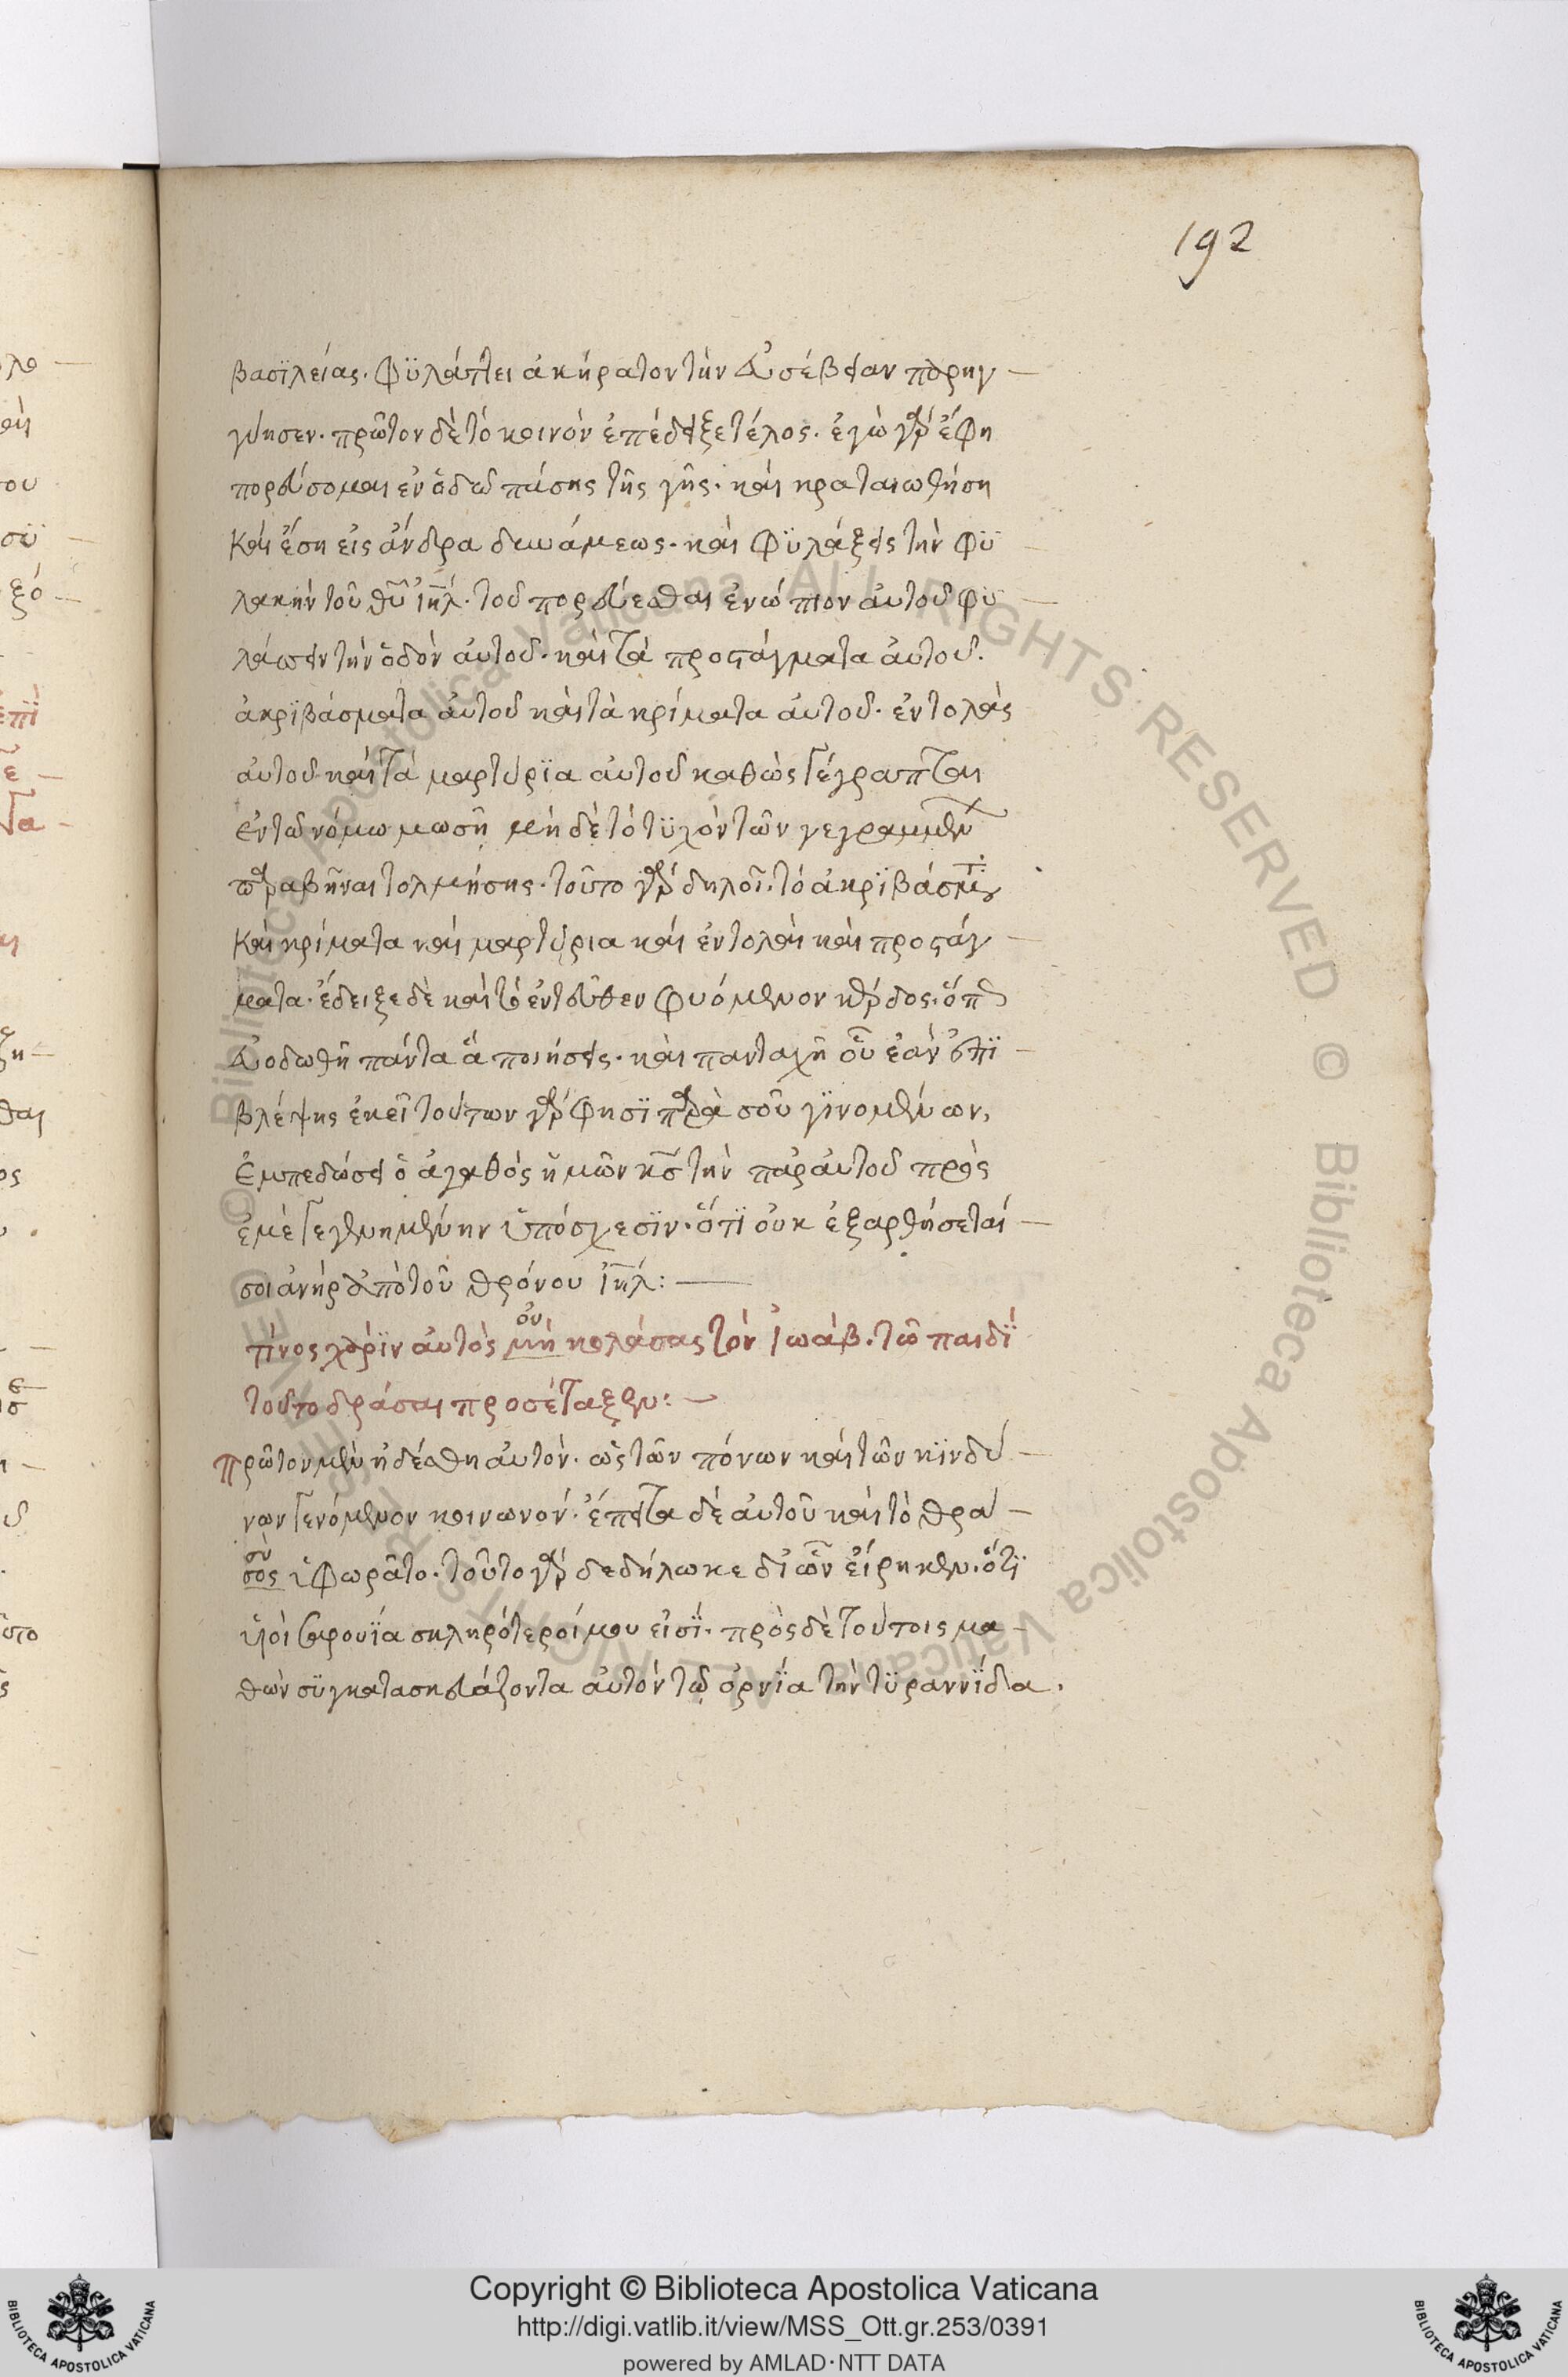 192
βασϊλείας. φϋλάττει ἀκήρατον τὴν εὐσέβειαν παρηγ
γύησεν. πρῶτον δὲ τὸ κοινὸν ἐπέδειξε τέλος. ἐγὼ γὰρ ἔφη
πορεύσομαι ἐν ὁδῶ πάσης τῆς γῆς. καὶ κραταιωθήση
Καὶ ἔση εἰς ἄνδρα δυνάμεως. καὶ φϋλάξεις τὴν φϋ
λακὴν τοῦ θῦ ἰηλ. τοῦ πορεύεσθαι ἐνώπιον αὐτοῦ φϋ
λάσσειν τὴν ὁδὸν αὐτοῦ. καὶ τὰ προστάγματα αὐτοῦ.
ἀκρϊβάσματα αὐτοῦ καὶ τὰ κρίματα αὐτοῦ. ἐντολὰς
αὐτοῦ καὶ τὰ μαρτύρϊα αὐτοῦ καθὼς γέγραπται
ἐν τῶ νόμω μωσῆ μὴ δὲ τὸ τϋχὸν τῶν γεγραμμένων
παραβῆναι τολμήσης. τοῦτο γὰρ δηλοῖ. τὸ ἀκρϊβάσματα
Καὶ κρίματα καὶ μαρτύρια καὶ ἐντολαὶ καὶ προστάγ
ματα. ἔδειξε δὲ καὶ τὸ ἐντεῦθεν φυόμενον κέρδος. ὅπως
εὐοδωθῆ πάντα ἃ ποιήσεις. καὶ πανταχῆ οὗ ἐὰν ἐπϊ
βλέψης ἐκεῖ τούτων γὰρ φησϊ παρὰ σοῦ γϊνομένων,
ἐμπεδώσει ὁ ἀγαθὸς ἡμῶν κς τὴν παρ αὐτοῦ πρὸς
ἐμὲ γεγενημένην ὑπόσχεσϊν. ὅτϊ οὐκ ἐξαρθήσεταί
σοι ἀνὴρ ἀπὸ τοῦ θρόνου ἰηλ:
οὐ
τίνος χάρϊν αὐτὸς μὴ κολάσας τὸν ἰωάβ. τῶ παιδὶ
τοῦτο δράσαι προσέταξεν:
πρῶτον μὲν ἠδέσθη αὐτὸν. ὡς τῶν πόνων καὶ τῶν κϊνδύ
νων γενόμενον κοινωνόν. ἔπειτα δὲ αὐτοῦ καὶ τὸ θρα
σὺ
σος ὑφωρᾶτο. τοῦτο γὰρ δεδήλωκε δι ὧν εἴρηκεν. ὅτϊ
ὑιοὶ σαρουΐα σκληρότεροί μου εἰσΐ. πρὸς δὲ τούτοις μα
θὼν σϋγκατασκευάζοντα αὐτὸν τῶ ὀρνΐα τὴν τϋραννΐδα.
Copyright © Biblioteca Apostolica Vaticana
http://digi.vatlib.it/view/MSS_Ott.gr.253/0391
powered by AMLAD·NTT DATA